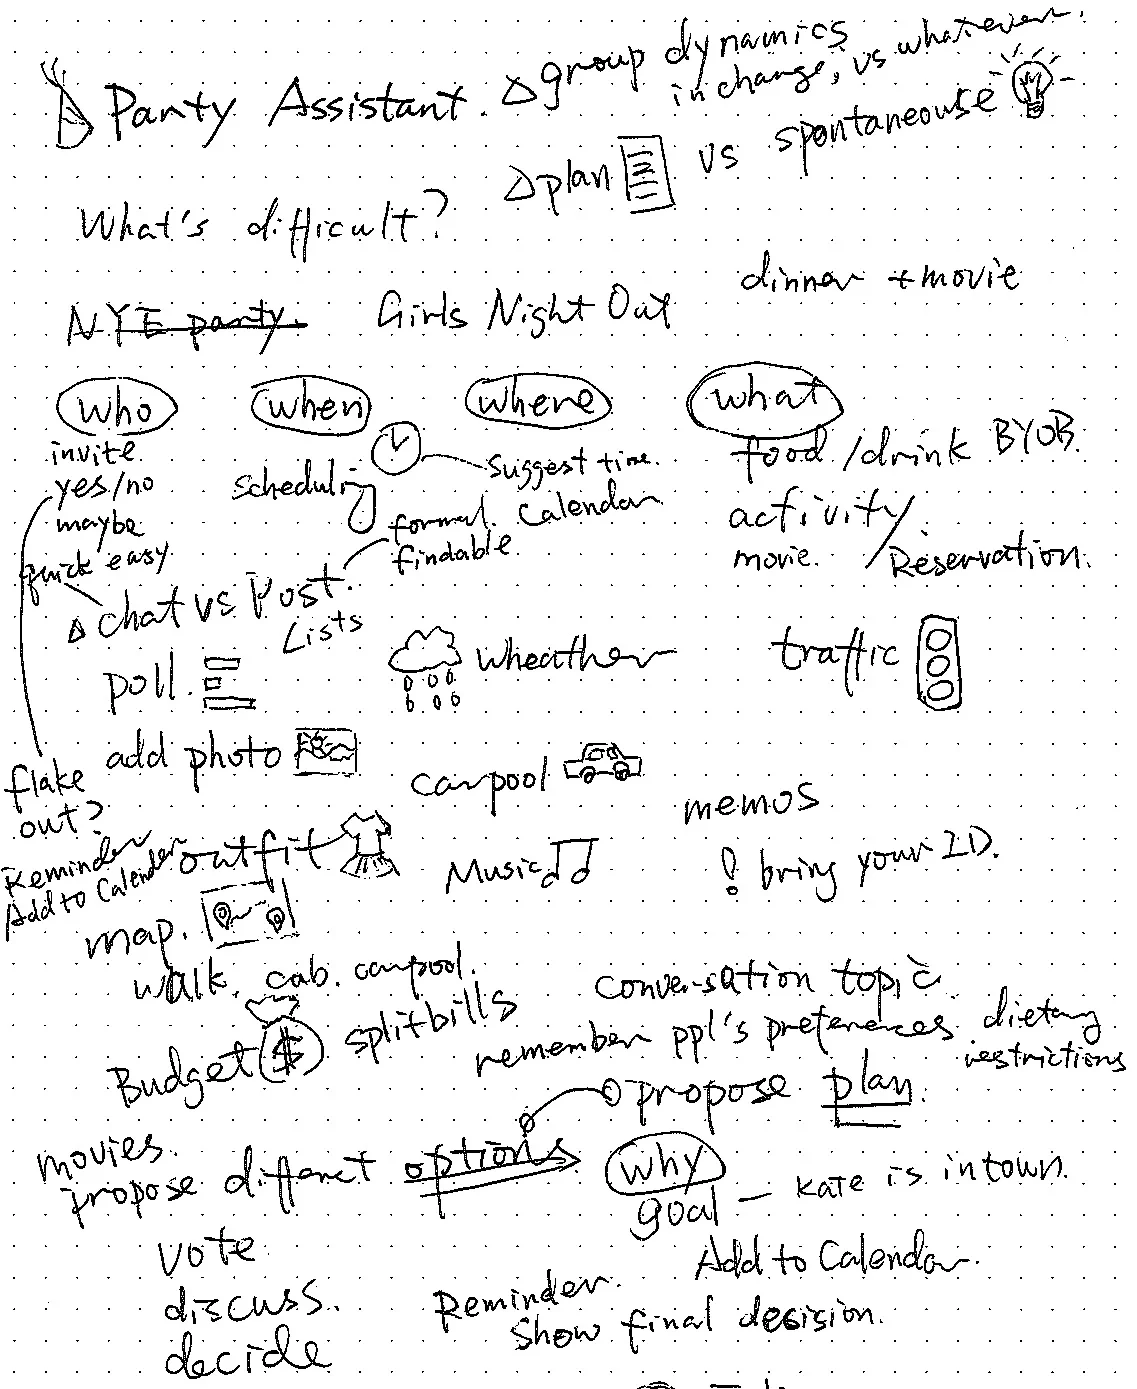 Party Assistant.
△ group dynamics
in change, vs whatever.
△ plan vs spontaneouse
What's difficult?
dinner + movie
NYE party. Girls Night Out
who when where what
invite
yes/no
maybe
quick easy
scheduling
suggest time.
formal. Calendar
findable
food/drink BYOB.
activity
movie. / Reservation.
△ chat vs Post.
Lists
poll.
wheather
traffic
add photo
carpool
flake
out?
Reminder
Add to Calender
memos
outfit
Music
! bring your ID.
map.
walk. cab. carpool.
conversation topic
Budget $ split bills
remember ppl's preferences. dietary
restrictions
propose plan.
movies.
propose differnet options
why
goal — Kate is in town.
vote
Add to Calendar.
discuss.
Reminder.
Show final desision.
decide